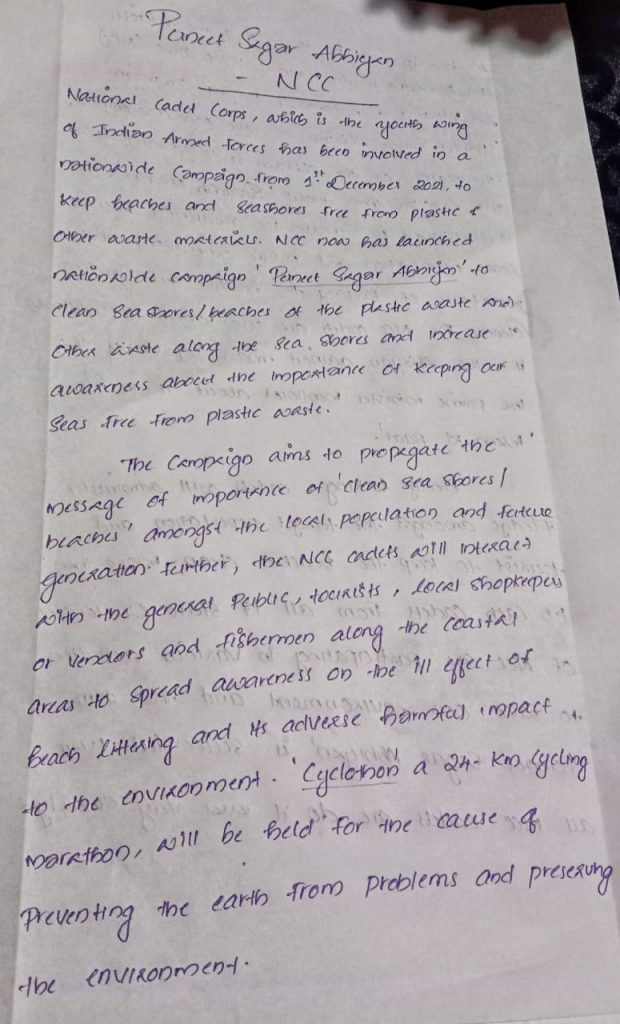 Puneet Sagar Abhiyan
- NCC
National Cadet Corps, which is the youth wing
of Indian Armed forces has been involved in a
nationwide Campaign from 1st December 2021, to
keep beaches and seashores free from plastic &
other waste materials. NCC now has launched
nationwide campaign 'Puneet Sagar Abhiyan' to
clean sea shores/beaches of the plastic waste and
other waste along the sea shores and increase
awareness about the importance of keeping our
seas free from plastic waste.
The Campaign aims to propagate the
message of importance of 'clean sea shores/
beaches' amongst the local population and future
generation. Further, the NCC cadets will interact
with the general Public, tourists, local shopkeepers
or vendors and fishermen along the coastal
areas to spread awareness on the ill effect of
beach littering and its adverse harmful impact
to the environment. 'Cyclothon' a 24-km cycling
marathon, will be held for the cause of
Preventing the earth from problems and preserving
the environment.